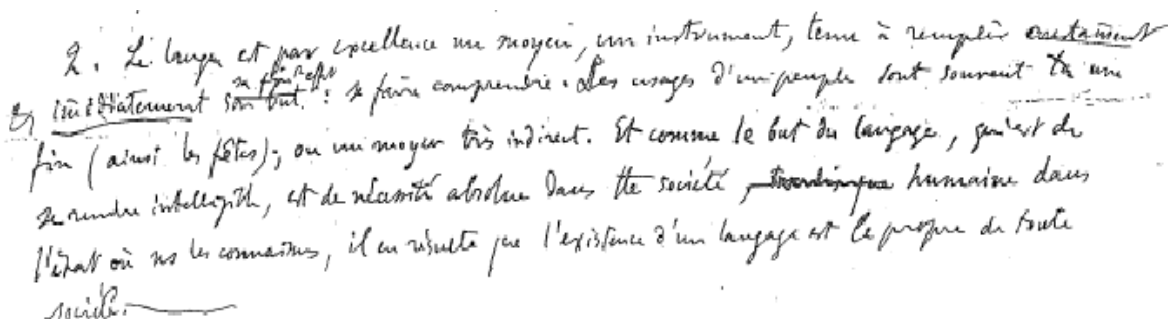 2. La langue est par excellence un moyen, un instrument, tenu à remplir constamment
et immédiatement sa fin et effet son but : se faire comprendre. Les usages d'un peuple sont souvent un
fin (ainsi les fêtes), ou un moyen très indirect. Et comme le but du langage, qui est de
se rendre intelligible, est de nécessité absolue dans tte société humaine dans
l'état où ns les connaissons, il en résulte que l'existence d'un langage est le propre de toute
société.